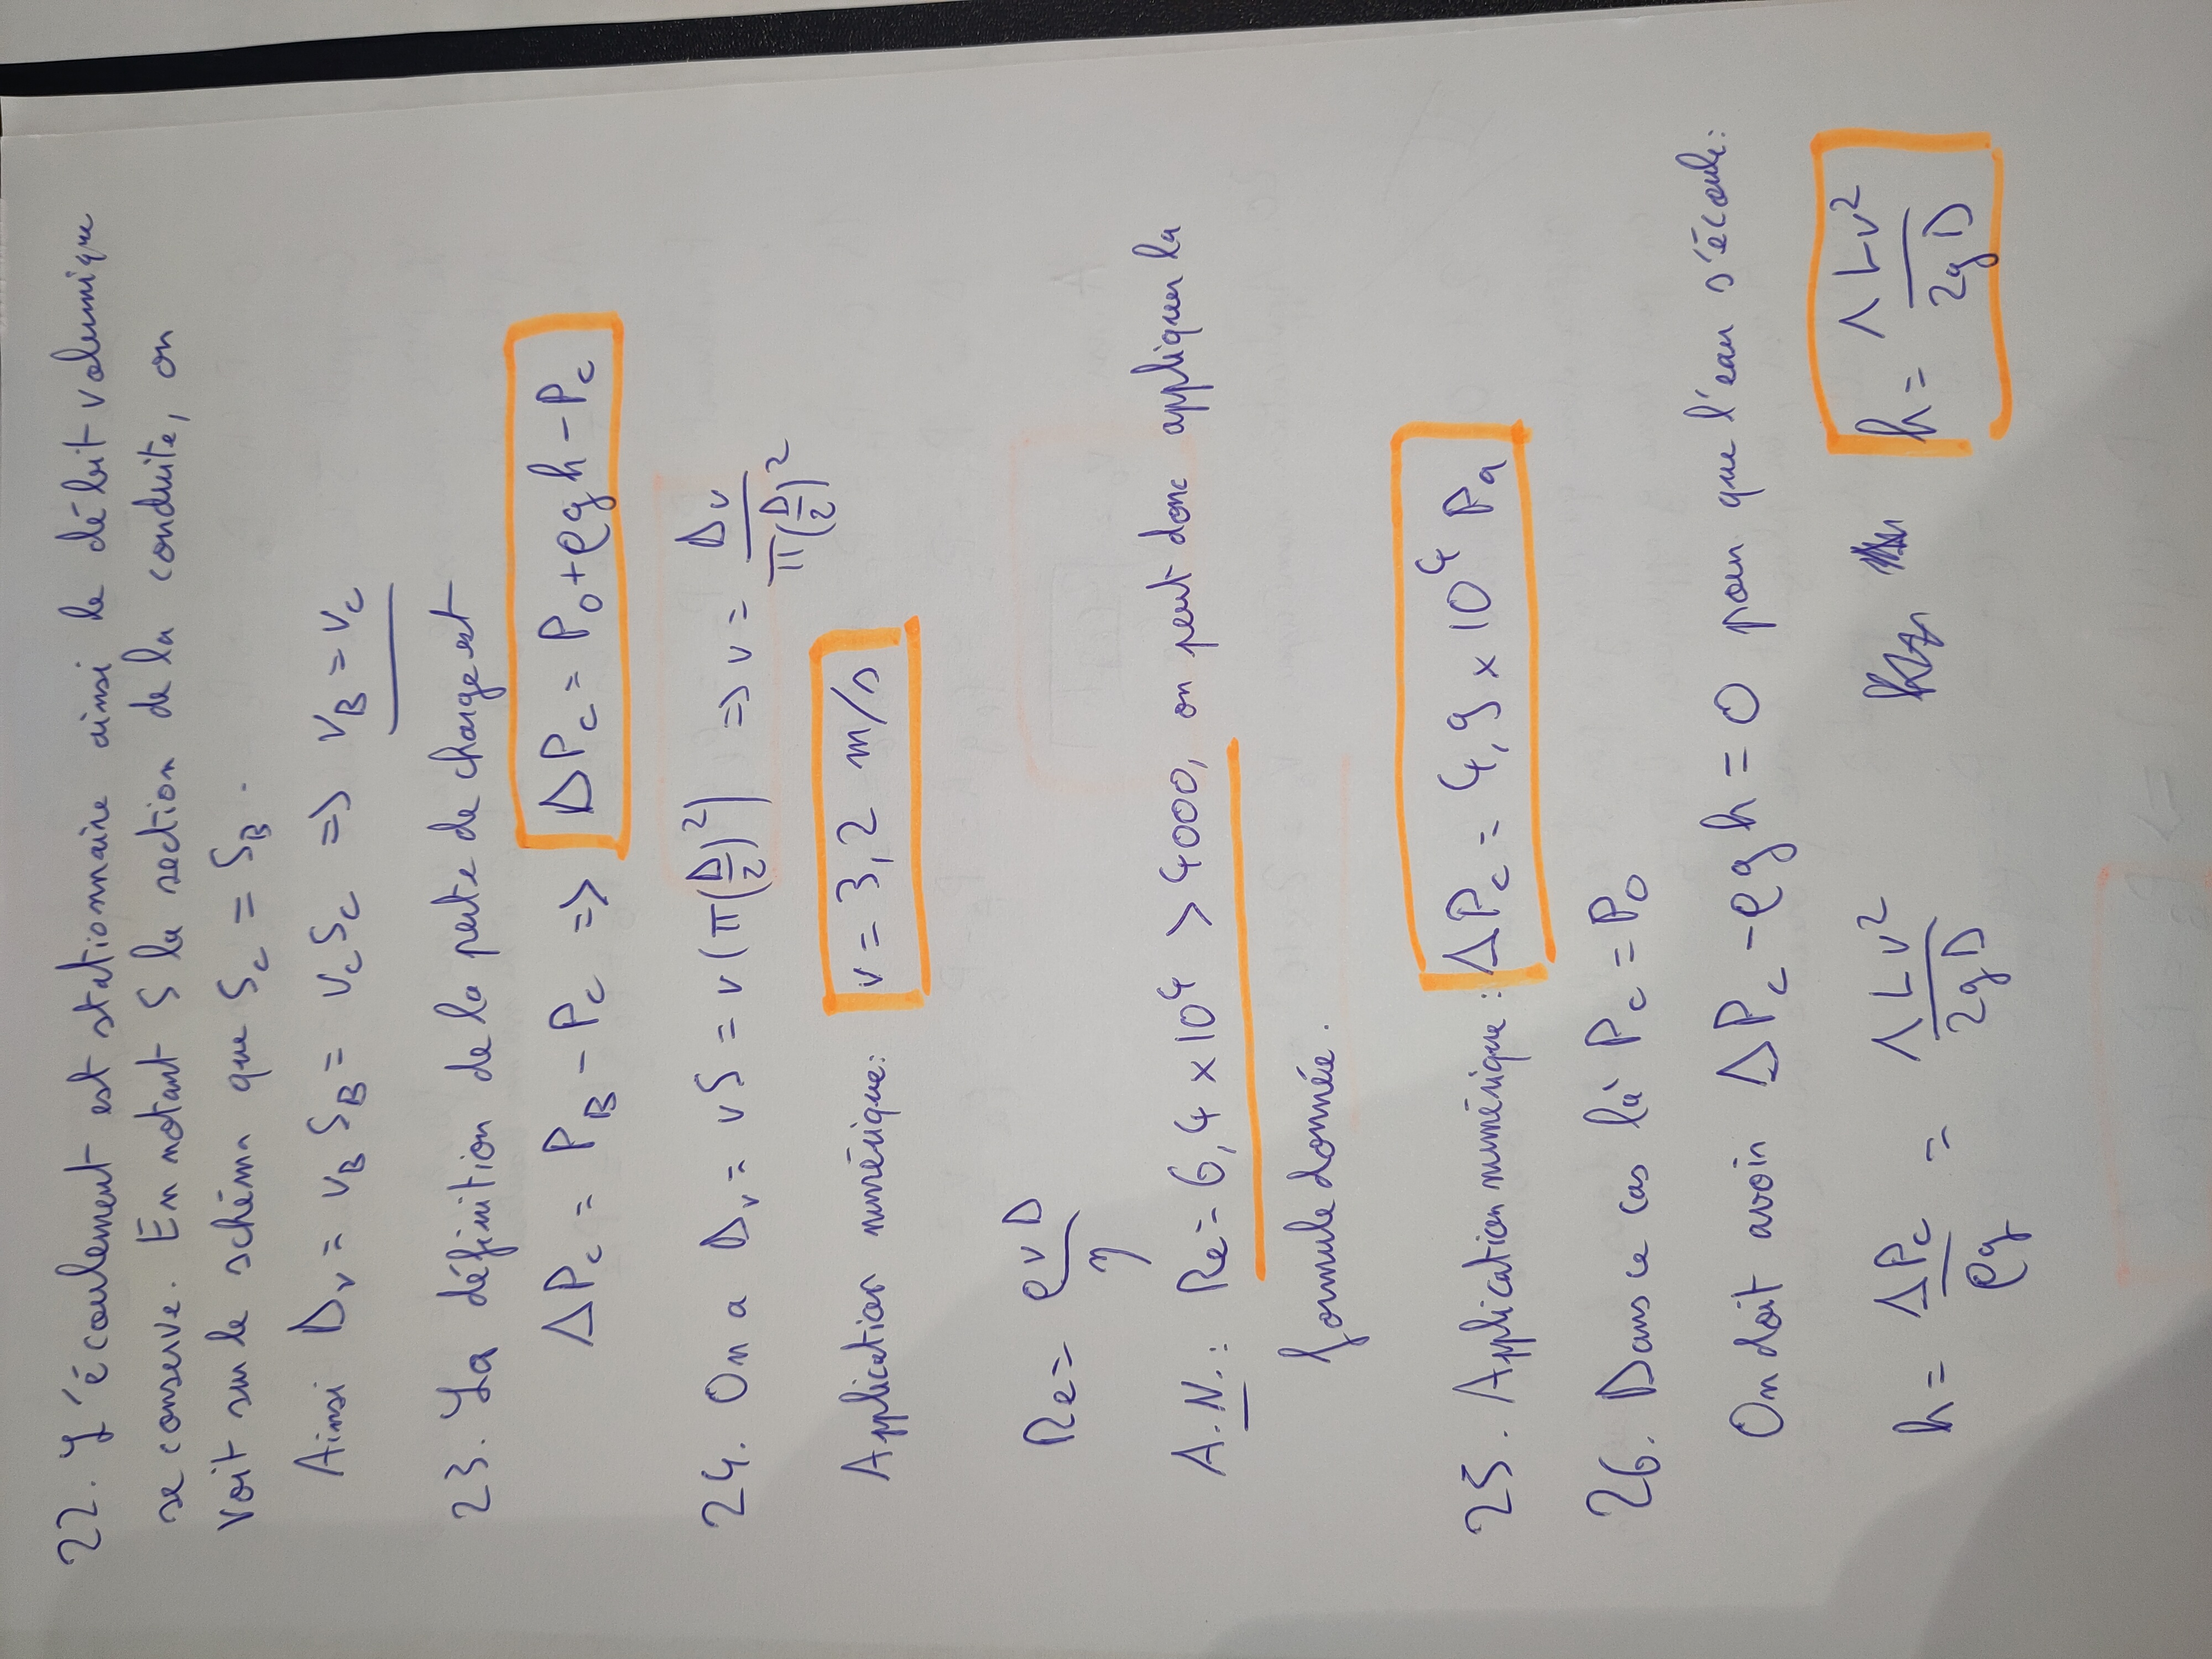 22. L'écoulement est stationnaire ainsi le débit volumique
se conserve. En notant S la section de la conduite, on
voit sur le schéma que S_c = S_B.
Ainsi D_v = v_B S_B = v_c S_c => v_B = v_c
23. La définition de la perte de charge est
ΔP_c = P_B - P_c => ΔP_c = P_0 + ρgh - P_c
24. On a D_v = vS = v(π(D/2)²) => v = D_v/π(D/2)²
Application numérique: v = 3,2 m/s
Re = ρvD/η
A.N.: Re = 6,4 × 10⁴ > 4000, on peut donc appliquer la
formule donnée.
25. Application numérique: ΔP_c = 4,9 × 10⁴ Pa
26. Dans ce cas là P_c = P_0
On doit avoir ΔP_c - ρgh = 0 pour que l'eau s'écoule:
h = ΔP_c/ρg = ΛLv²/2gD h = ΛLv²/2gD